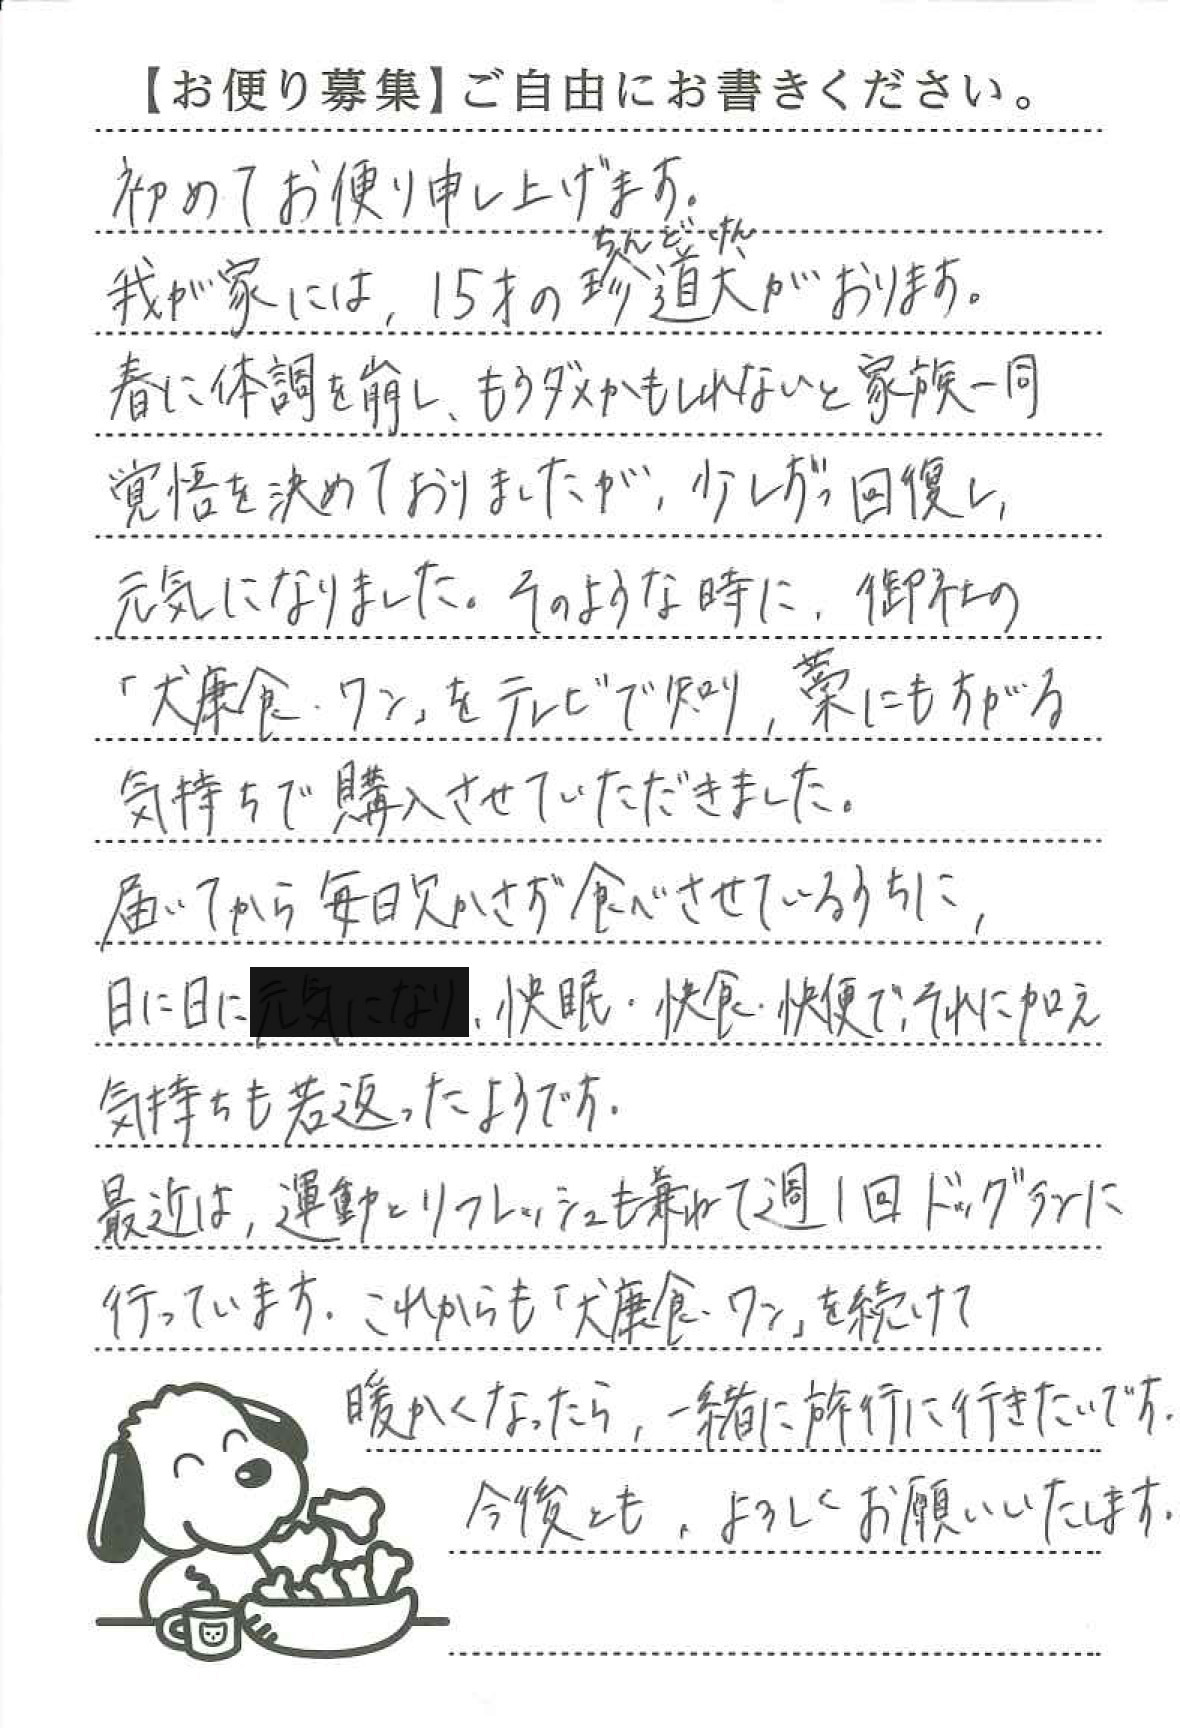 【お便り募集】ご自由にお書きください。
初めてお便り申し上げます。
ちんどけん
我が家には、15才の珍道犬がおります。
春に体調を崩し、もうダメかもしれないと家族一同
覚悟を決めておりましたが、少しずつ回復し、
元気になりました。そのような時に、御社の
「犬康食・ワン」をテレビで知り、藁にもすがる
気持ちで購入させていただきました。
届いてから毎日欠かさず食べさせているうちに、
日に日に元気になり、快眠・快食・快便で、それに加え
気持ちも若返ったようです。
最近は、運動とリフレッシュも兼ねて週1回ドッグランに
行っています。これからも「犬康食・ワン」を続けて
暖かくなったら、一緒に旅行に行きたいです。
今後とも、よろしくお願いいたします。